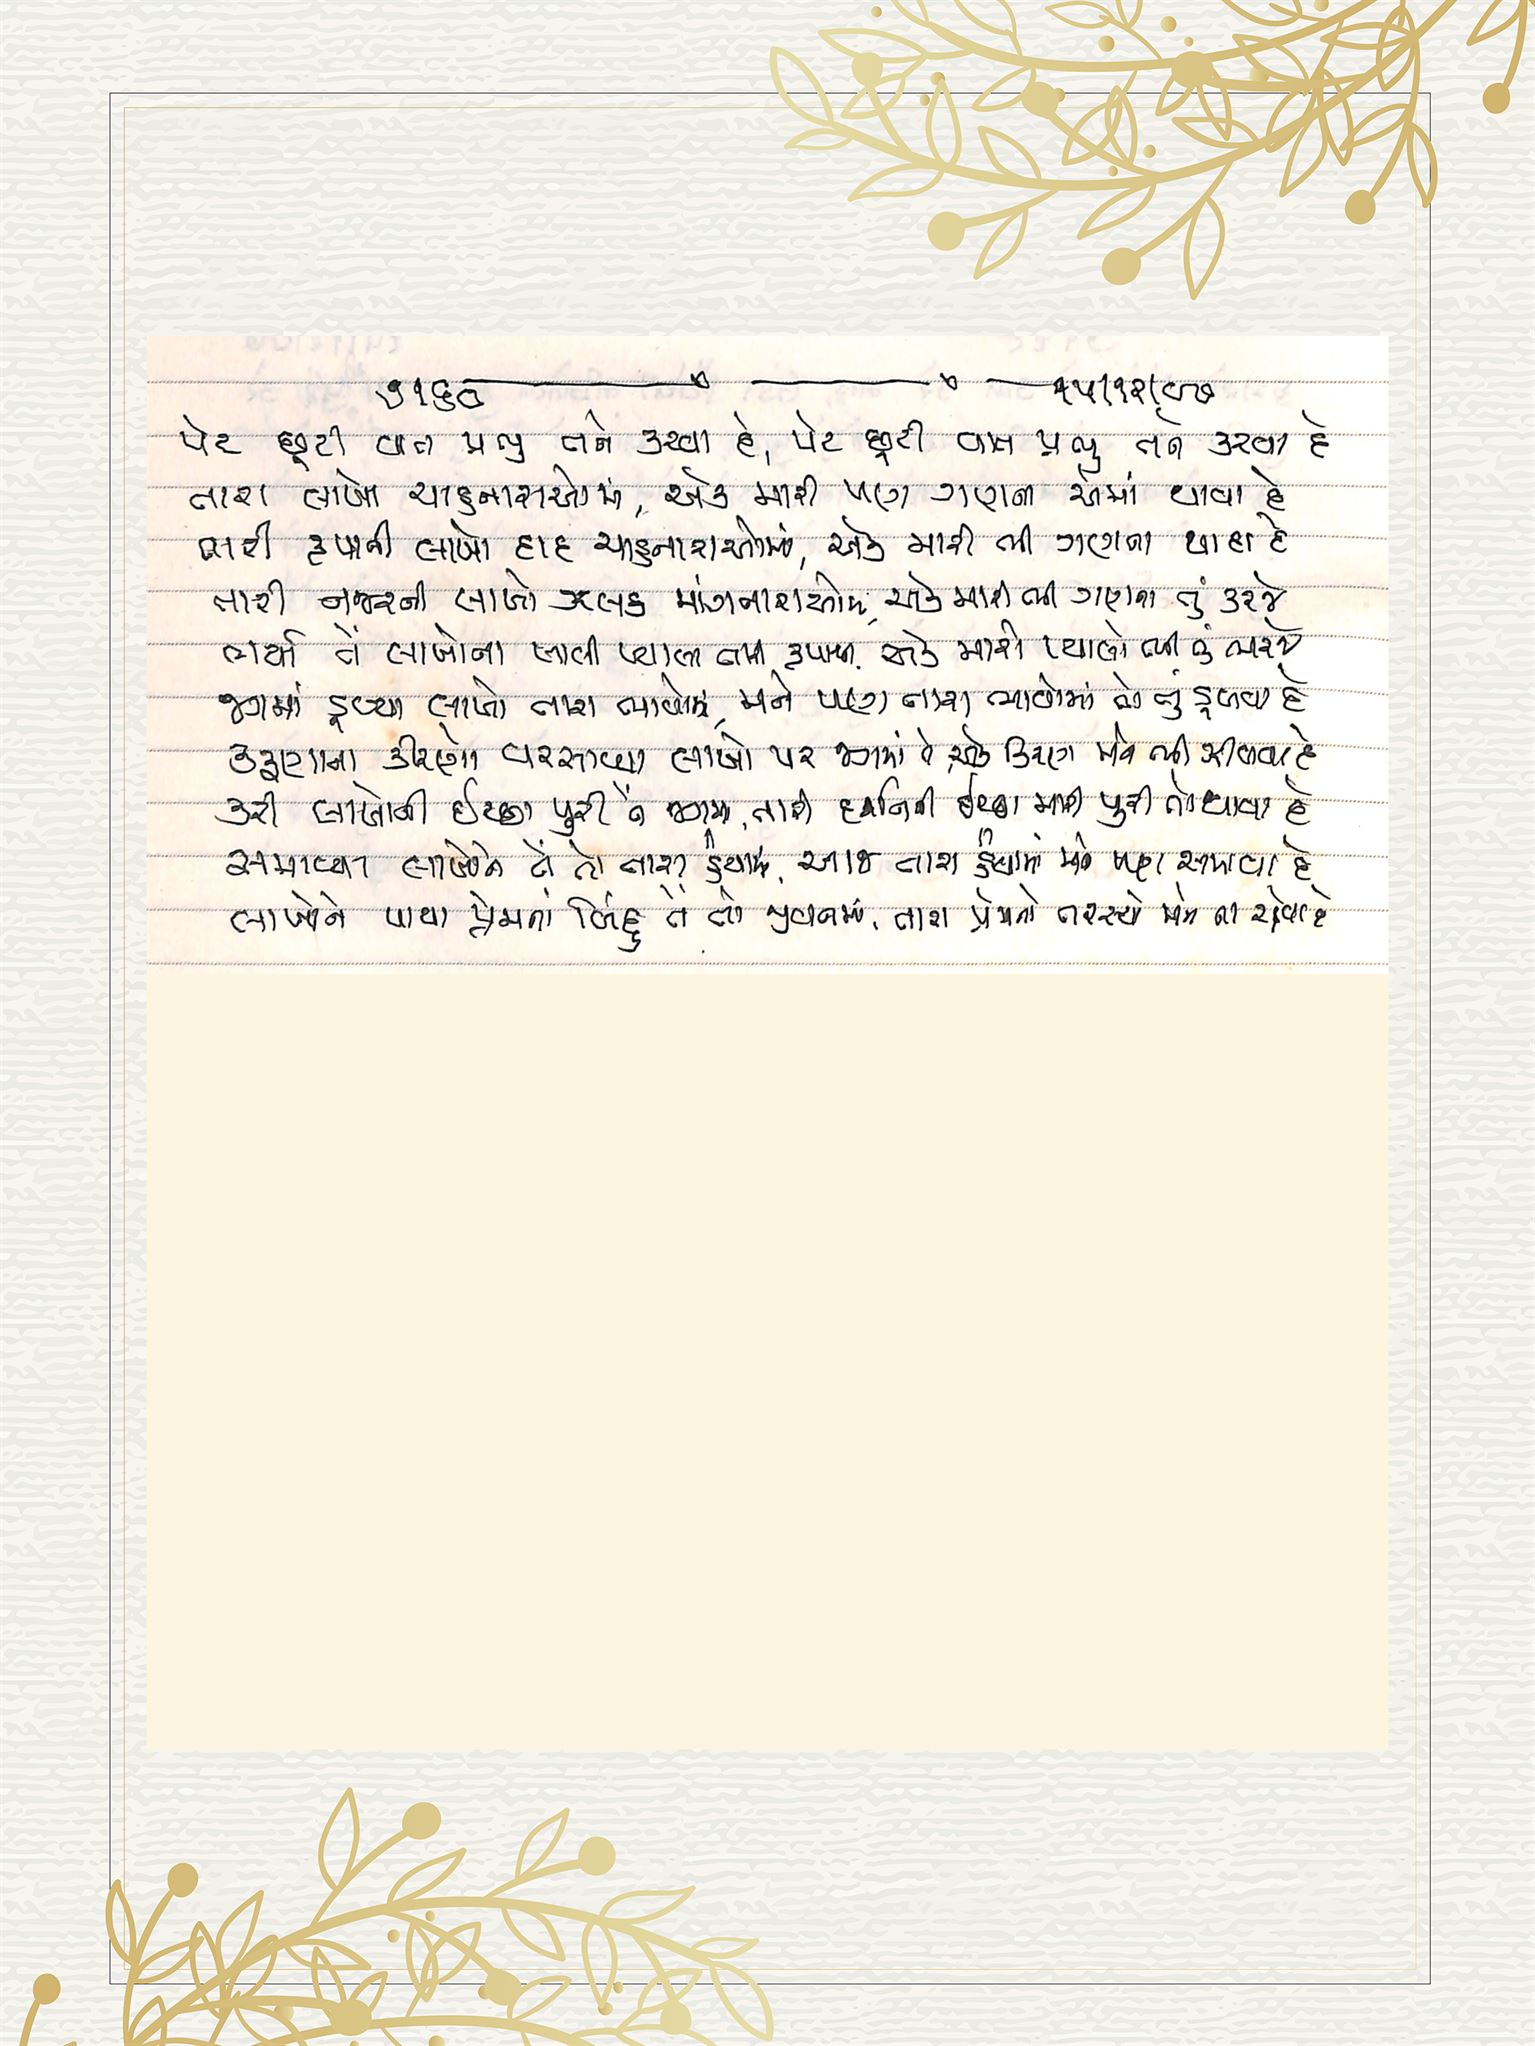 ૭૧૬૦ ૧૫/૧૨/૯૭
પેટ છૂટી વાત પ્રભુ તને કરવા દે, પેટ છૂટી વાત પ્રભુ તને કરવા દે
તારા લાખો ચાહનારાઓમાં, એક મારી પણ ગણના એમાં થાવા દે
તારી કૃપાની લાખો દાદ ચાહનારાઓમાં, એક મારી ભી ગણના થાવા દે
તારી નજરની લાખો ઝલક માંગનારાઓમાં, એક મારી ભી ગણના તું કરજે
ભર્યા તેં લાખોના ખાલી પ્યાલા તારી કૃપામાં, એક મારો પ્યાલો ભી તું ભરજે
જગમાં ડૂબ્યા લાખો તારા ભાવોમાં, મને પણ તારા ભાવોમાં તો તું ડૂબવા દે
કરૂણાના કીરણો વરસાવ્યા લાખો પર જગમાં તેં, એક કિરણ મને ભી ઝીલવા દે
કરી લાખોની ઈચ્છા પુરી તેં જગમાં, તારી દર્શનની ઈચ્છા મારી પુરી તો થાવા દે
સમાવ્યા લાખોને તેં તો તારા હૈયામાં, આજ તારા હૈયામાં મને પણ સમાવા દે
લાખોને પાયા પ્રેમનાં બિંદુ તેં તો જીવનમાં, તારા પ્રેમનો તરસ્યો મને ના રહેવા દે